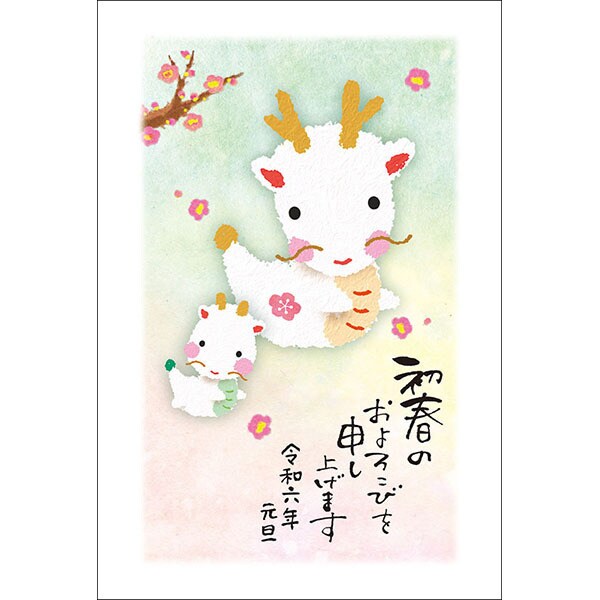 初春の
およろこびを
申し
上げます
令和六年
元旦